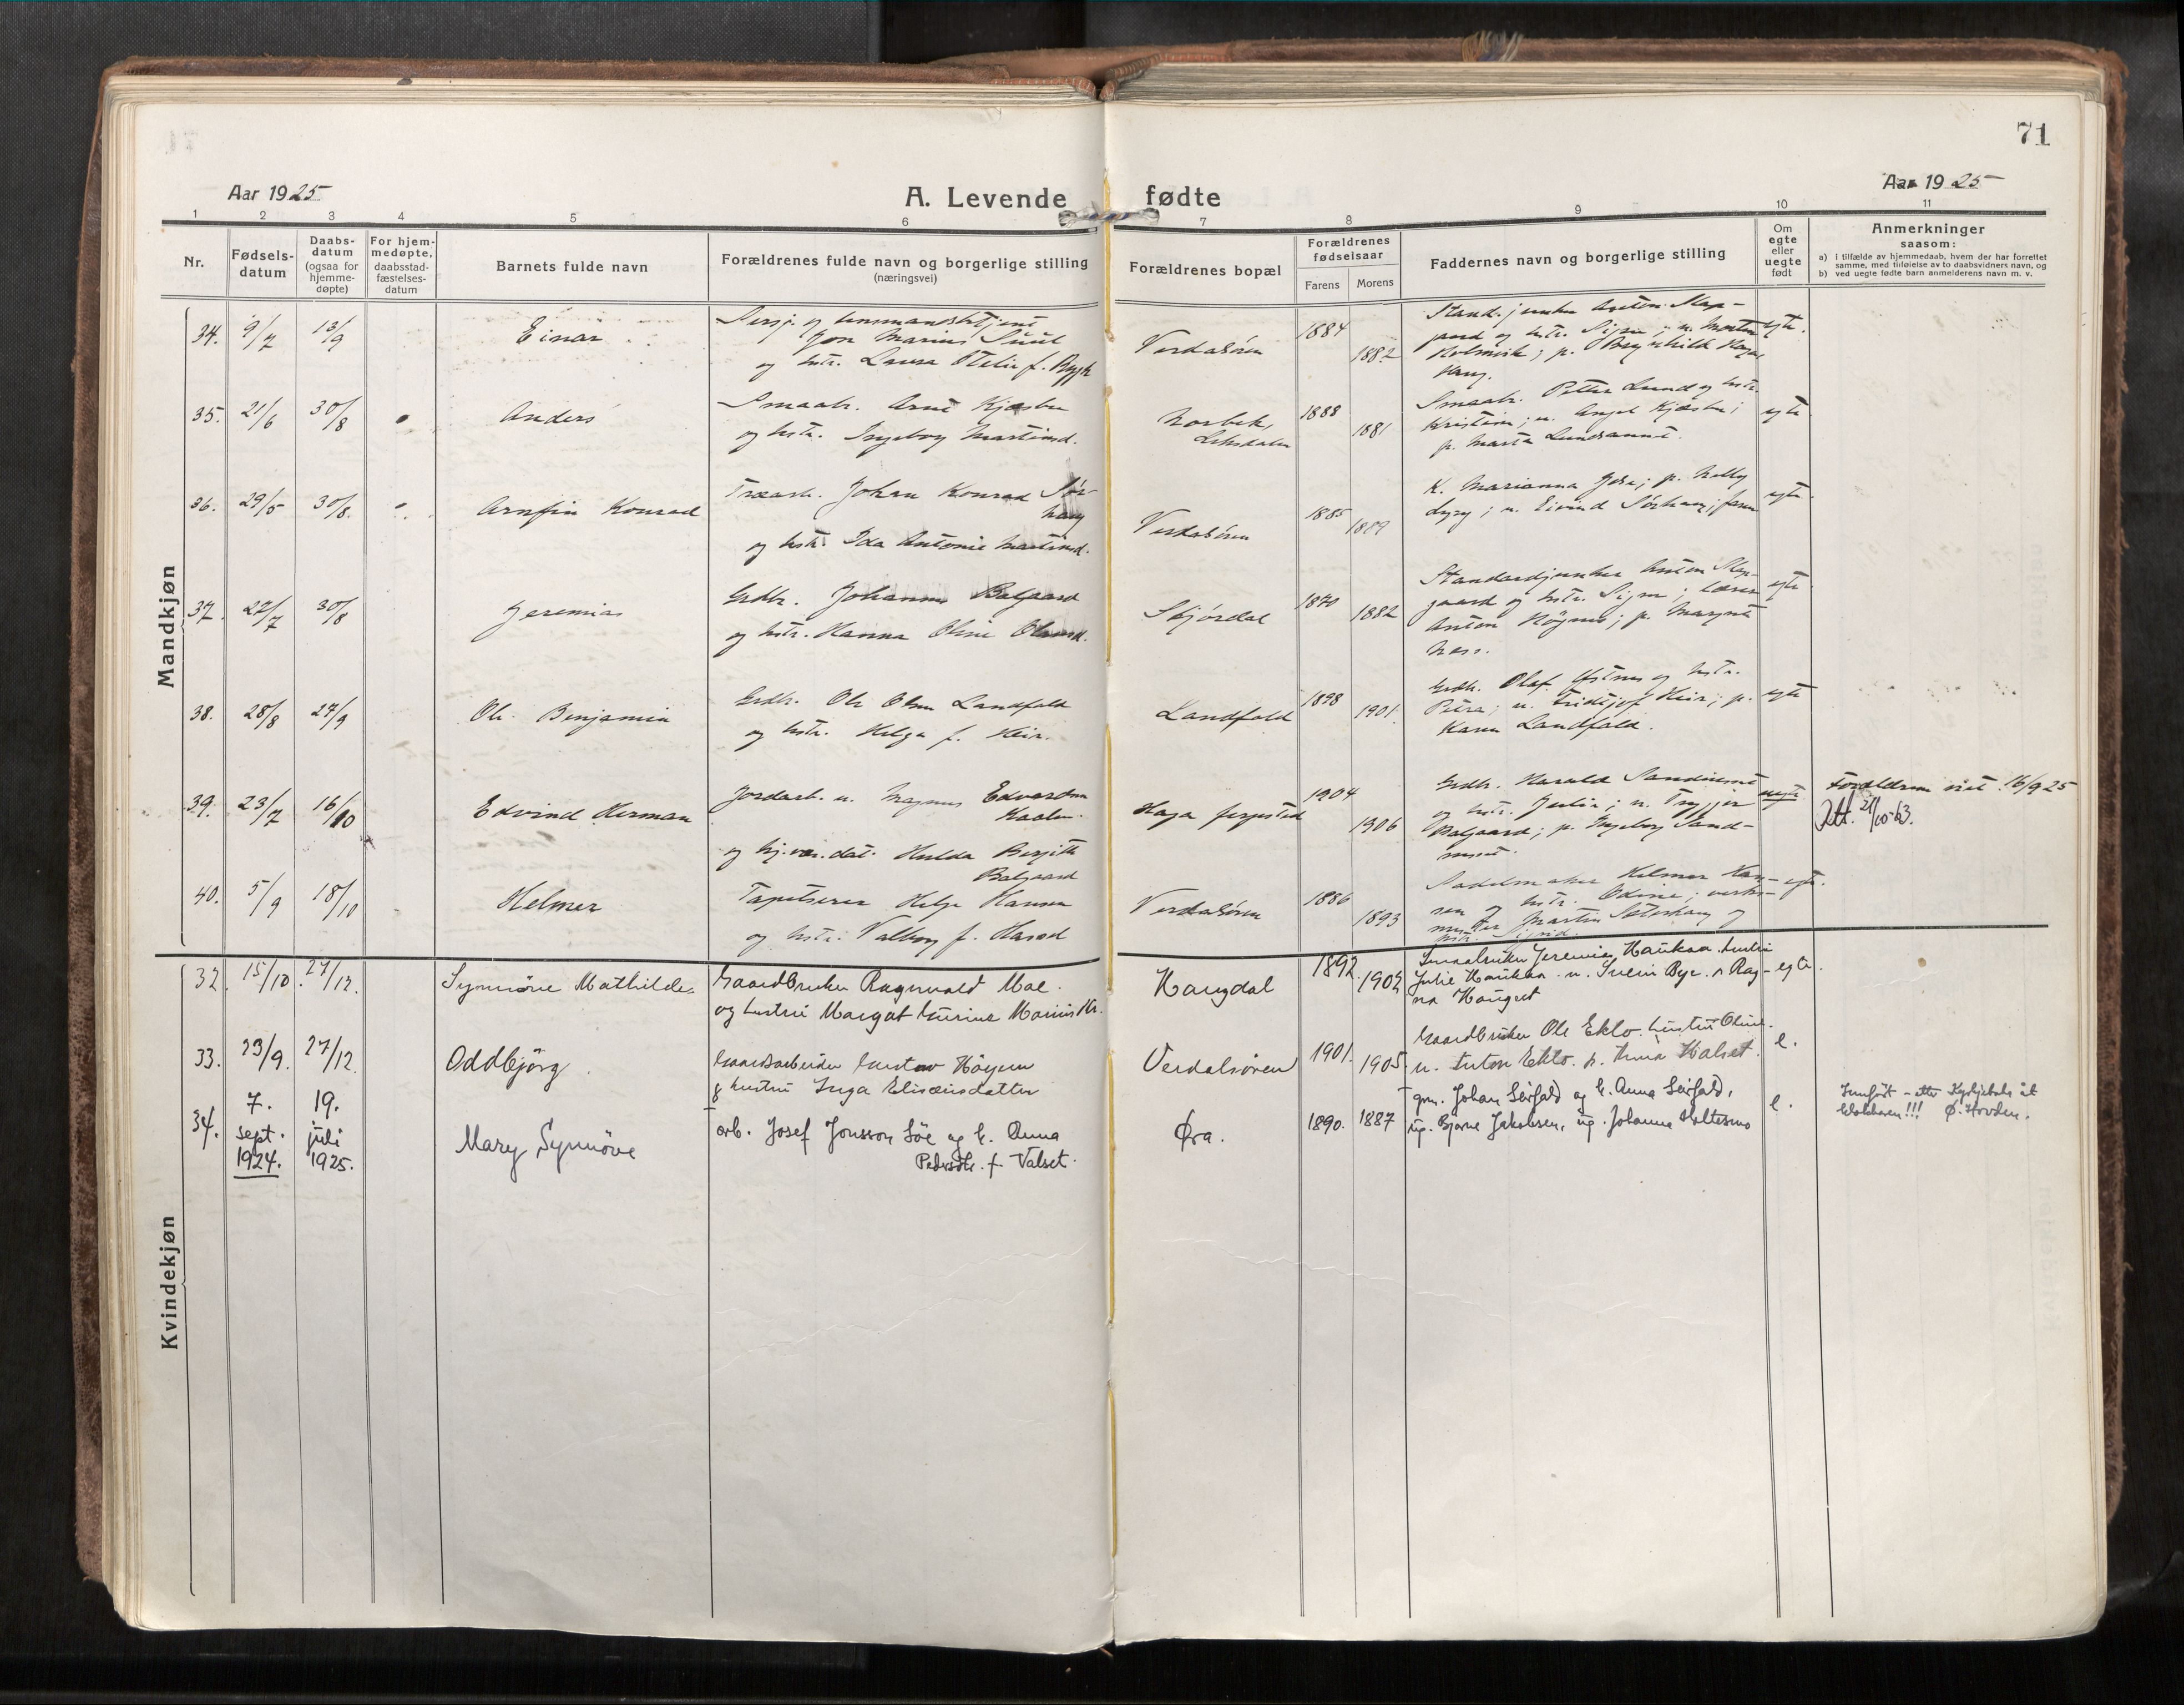 71
Aar 1925
A. Levende fødte
Aar 1925
1 2 3 4 5 6 7 8 9 10 11
Nr.
Fødsels-
datum
Daabs-
datum
(ogsaa for
hjemme-
døpte)
For hjem-
medøpte,
daabsstad-
fæstelses-
datum
Barnets fulde navn
Forældrenes fulde navn og borgerlige stilling
(næringsvei)
Forældrenes bopæl
Forældrenes
fødselsaar
Farens Morens
Faddernes navn og borgerlige stilling
Om
egte
eller
uegte
født
Anmerkninger
saasom:
a) i tilfælde av hjemmedaab, hvem der har forrettet
samme, med tilføielse av to daabsvidners navn, og
b) ved uegte fødte barn anmelderens navn m. v.
Mandkjøn
34. 9/7 13/9 Einar
Jon Marius Suul
og hstr. Laura Otelie f. Bygh
Verdalsøren 1884 1882
Stand.junker Anton Mæ-
gaard og hstr. Signe; u. Morten
Holmvik; p. Brynhild
Haug.
egte.
35. 21/6 30/8 Anders
Smaabr. Arne Kjæsbu
og hstr. Ingeborg Martinsd.
Leksdalen 1888 1881
Smaabr. Petter Lund og hstr.
Kristine; u. Angel Kjæsbu;
p. Marta Lundsaunet.
egte
36. 29/5 30/8 Arnfin Konrad
Træarb. Johan Konrad Sør-
haug
og hstr. Ida Antonie Martinsd.
Verdalsøren 1885 1889
K. Marianna p.
u. Eivind Sørhaug; faren
egte.
37. 27/7 30/8 Jeremias
Grdbr. Johannes Balgaard
og hstr. Hanna Oline Olausd.
Skjørdal 1870 1882
Standardjunker Anton Mæ-
gaard og hstr. Signe; lærer
Anton Högnes; p. Margnete
Næss.
egte.
38. 28/8 27/9 Ole Benjamin
Grdbr. Ole Olsen Landfald
og hstr. Helga f. Heir.
Landfald 1898 1901.
Grdbr. Olaf Østnes og hstr.
Petra; u. Fridtjof Heir; p.
Karen Landfald.
egte
39. 23/7 16/10 Edvind Herman
Jordarb. u. Magnus Edvardsen
Kaalen.
og hj.vær.dat. Hulda Bergitte
Balgaard
Haga fergested 1904 1906
Grdbr. Harald Sandmoset
og hstr. Julie; u. Trygve
Balgaard; p. Ingeborg Sand-
moset.
uegte
Forældrene viet 16/9 25
Att. 21/10-63.
40. 5/9 18/10 Helmer
Tapetserer Helge Hansen
og hstr. Valborg f. Harad
Verdalsøren 1886 1893
Sadelmaker Helmer Han-
sen og hstr. Odine; verks-
mester Martin Säterhaug og
hstr. Sigrid.
egte.
Kvindekjøn
32. 15/10. 27/12. Synnöve Mathilde.
Gaardbruker Ragnvald Moe.
og hustru Margot Kirine Marius Kr.
Haugdal 1892 1902
Smaabruker Jeremias Haukaa. hustru
Julie Haukaa. u. Svein Bye. p. Rag-
na Hauget
egte.
33. 23/9. 27/12. Oddbjörg.
Gaardsarbeider Gustav Höyem
& hustru Inga Eliseusdatter
Verdalsøren 1901. 1905.
Gaardbruker Ole Eklo. hustru Oline.
u. Anton Eklo. p. Anna Halset.
e.
34. 7.
sept.
1924.
19.
juli
1925.
Mary Synnöve
arb. Josef Jonsson Löe og h. Anna
Pedersdtr. f. Valset.
Øra. 1890. 1887
gm. Johan Leirfald og h. Anna Leirfald,
ug. Bjarne Jakobsen, ug. Johanna Holtesmo
e.
Innført - etter Kyrkjeboka åt
klokkaren!!! Ø. Hovden.